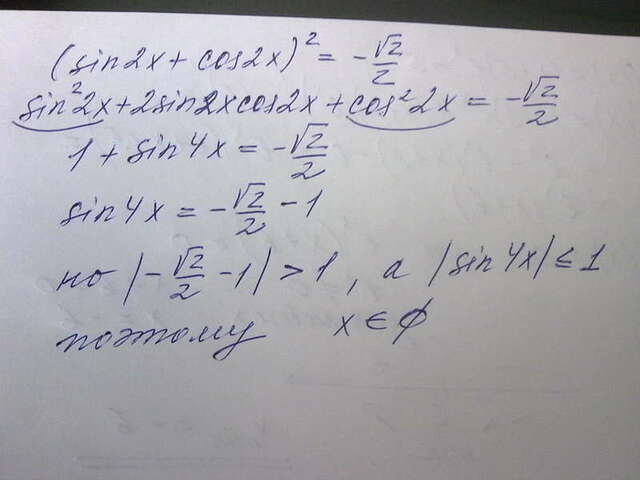 (sin2x + cos2x)² = -√2/2
sin²2x + 2sin2xcos2x + cos²2x = -√2/2
1 + sin4x = -√2/2
sin4x = -√2/2 - 1
но |-√2/2 - 1| > 1, а |sin4x| ≤ 1
поэтому x ∈ ∅